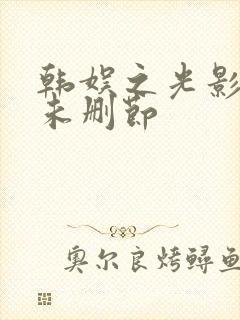 韩娱之光影
未删节
奥尔良烤鲟鱼